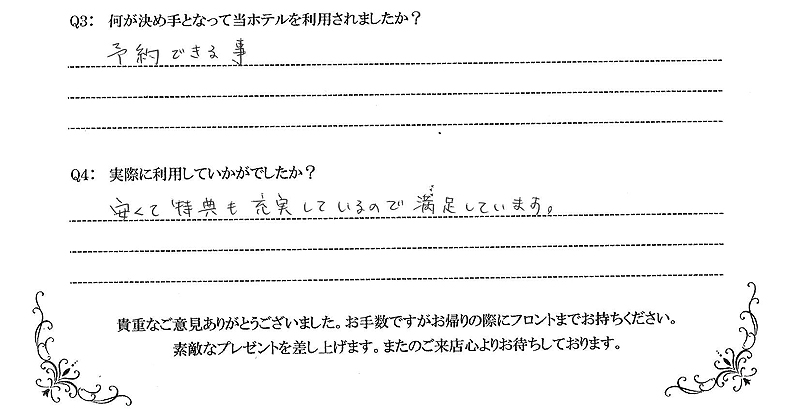 Q3： 何が決め手となって当ホテルを利用されましたか？
予約できる事
Q4： 実際に利用していかがでしたか？
安くて特典も充実しているので満足しています。
貴重なご意見ありがとうございました。お手数ですがお帰りの際にフロントまでお持ちください。
素敵なプレゼントを差し上げます。またのご来店心よりお待ちしております。